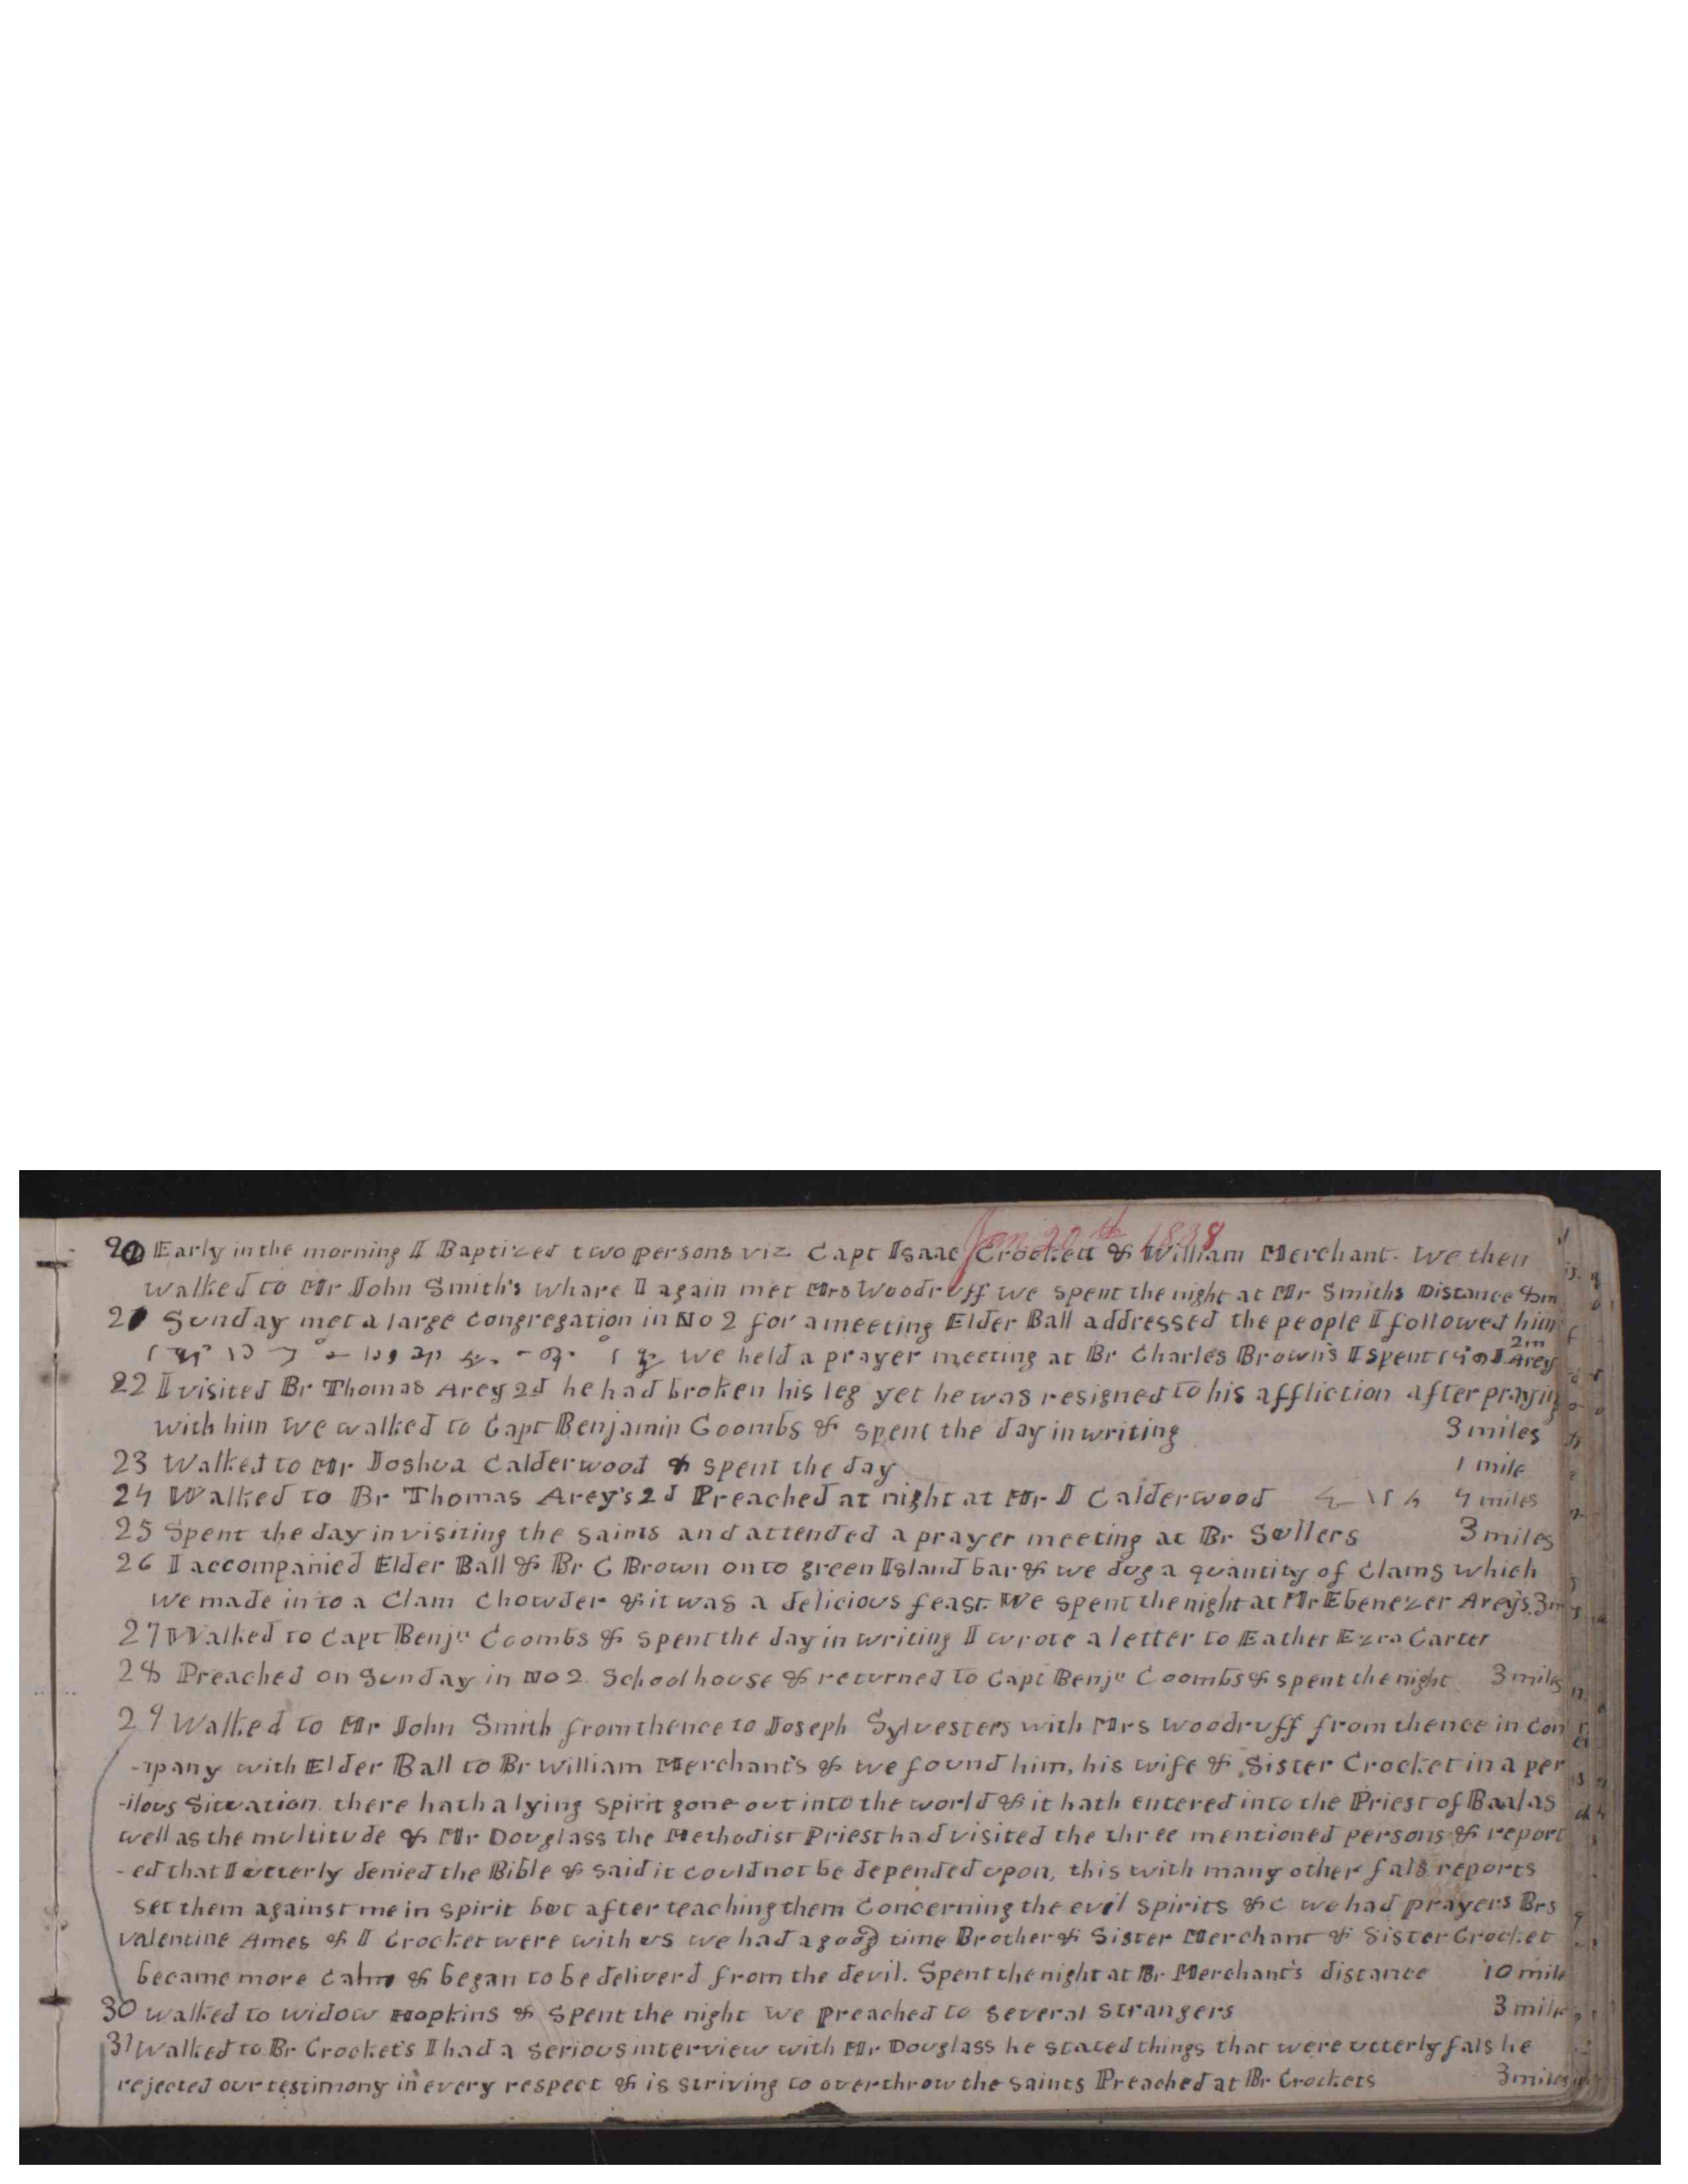 Jan 20th 1838
20 Early in the morning I Baptized two persons viz Capt Isaac Crockett & William Merchant. We then
walked to Mr John Smith's whare I again met Mrs Woodruff we spent the night at Mr Smiths Distance 8m
21 Sunday met a large congregation in No 2 for a meeting Elder Ball addressed the people I followed him
2m
We held a prayer meeting at Br Charles Brown's I spent J Arey
22 I visited Br Thomas Arey 2d he had broken his leg yet he was resigned to his affliction after praying
with him We walked to Capt Benjamin Coombs & spent the day in writing 3 miles
23 Walked to Mr Joshua Calderwood & spent the day 1 mile
24 Walked to Br Thomas Arey's 2d Preached at night at Mr J Calderwood 4 miles
25 Spent the day in visiting the Saints and attended a prayer meeting at Br Sellers 3 miles
26 I accompanied Elder Ball & Br C Brown on to green Island bar & we dug a quantity of Clams which
we made in to a Clam Chowder & it was a delicious feast. We spent the night at Mr Ebenezer Arey's. 3m
27 Walked to Capt Benjn Coombs & spent the day in writing I wrote a letter to Father Ezra Carter
28 Preached on Sunday in No 2. School house & returned to Capt Benjn Coombs & spent the night 3 miles
29 Walked to Mr John Smith from thence to Joseph Sylvesters with Mrs Woodruff from thence in com
-pany with Elder Ball to Br William Merchant's & we found him, his wife & Sister Crocket in a per
-ilous Situation. there hath a lying spirit gone out into the world & it hath entered into the Priest of Baal as
well as the multitude & Mr Douglass the Methodist Priest had visited the three mentioned persons & report
-ed that I utterly denied the Bible & said it could not be depended upon, this with many other fals reports
set them against me in spirit but after teaching them Concerning the evil spirits &c we had prayers Brs
Valentine Ames & I Crocket were with us we had a good time Brother & Sister Merchant & Sister Crocket
became more calm & began to be deliverd from the devil. Spent the night at Br Merchant's distance 10 mile
30 walked to widow Hopkins & spent the night we preached to several strangers 3 mile
31 Walked to Br Crocket's I had a serious interview with Mr Douglass he stated things that were utterly fals he
rejected our testimony in every respect & is striving to overthrow the saints Preached at Br Crockets 3 miles